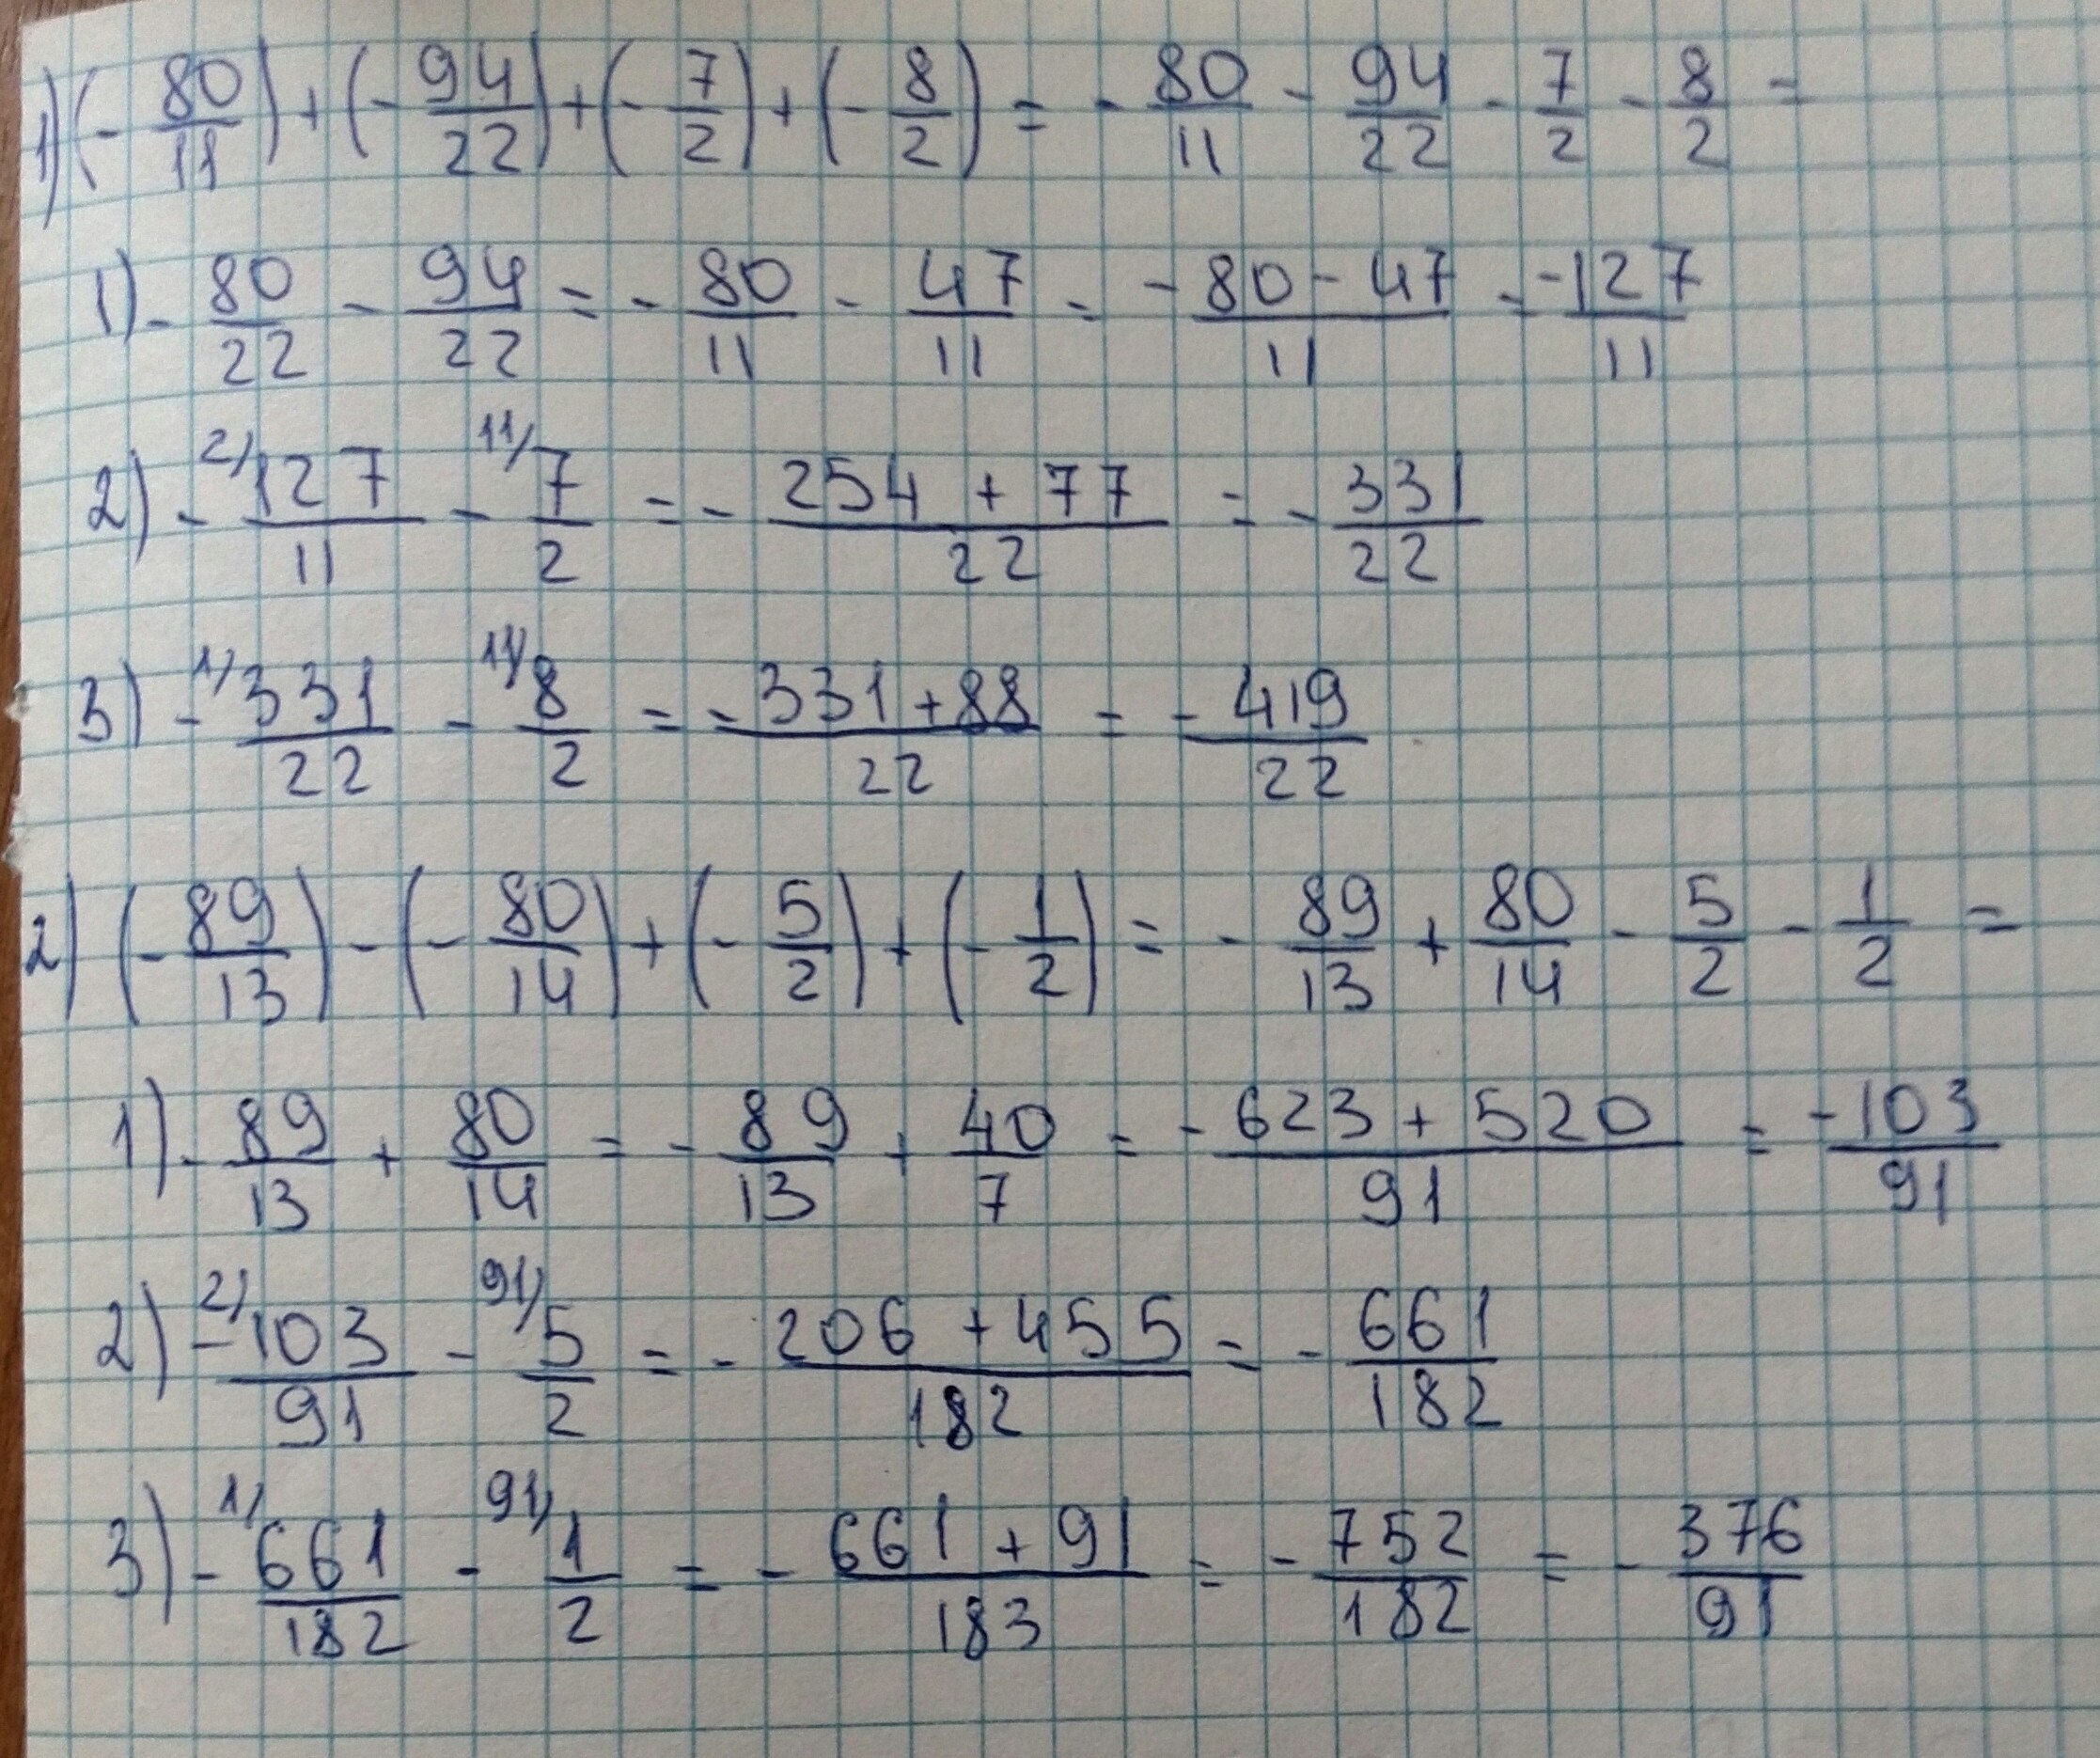 1) (- 80/11) + (- 94/22) + (- 7/2) + (- 8/2) = - 80/11 - 94/22 - 7/2 - 8/2 =
1) - 80/22 - 94/22 = - 80/11 - 47/11 = -80-47/11 = -127/11
2) - 2/ 127/11 - 11/ 7/2 = - 254 + 77/22 = - 331/22
3) - 1/ 331/22 - 11/ 8/2 = - 331 + 88/22 = - 419/22
2) (- 89/13) - (- 80/14) + (- 5/2) + (- 1/2) = - 89/13 + 80/14 - 5/2 - 1/2 =
1) - 89/13 + 80/14 = - 89/13 + 40/7 = - 623 + 520/91 = -103/91
2) - 2/ 103/91 - 91/ 5/2 = - 206 + 455/182 = - 661/182
3) - 1/ 661/182 - 91/ 1/2 = - 661 + 91/183 = - 752/182 = - 376/91